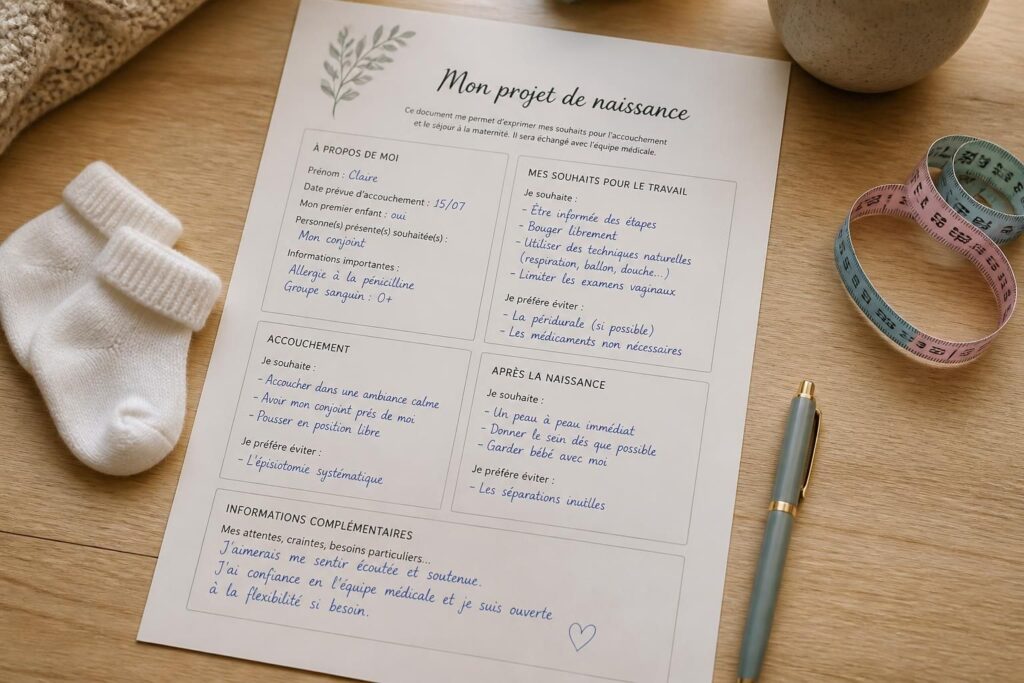 Mon projet de naissance
Ce document me permet d'exprimer mes souhaits pour l'accouchement
et le séjour à la maternité. Il sera échangé avec l'équipe médicale.
À PROPOS DE MOI
Prénom : Claire
Date prévue d'accouchement : 15/07
Mon premier enfant : oui
Personne(s) présente(s) souhaitée(s) :
Mon conjoint
Informations importantes :
Allergie à la pénicilline
Groupe sanguin : O+
MES SOUHAITS POUR LE TRAVAIL
Je souhaite :
- Être informée des étapes
- Bouger librement
- Utiliser des techniques naturelles
(respiration, ballon, douche...)
- Limiter les examens vaginaux
Je préfère éviter :
- La péridurale (si possible)
- Les médicaments non nécessaires
ACCOUCHEMENT
Je souhaite :
- Accoucher dans une ambiance calme
- Avoir mon conjoint prés de moi
- Pousser en position libre
Je préfère éviter :
- L'épisiotomie systématique
APRÈS LA NAISSANCE
Je souhaite :
- Un peau à peau immédiat
- Donner le sein dés que possible
- Garder bébé avec moi
Je préfère éviter :
- Les séparations inutlles
INFORMATIONS COMPLÉMENTAIRES
Mes attentes, craintes, besoins particuliers...
J'aimerais me sentir écoutée et soutenue.
J'ai confiance en l'équipe médicale et je suis ouverte
à la flexibilité si besoin.